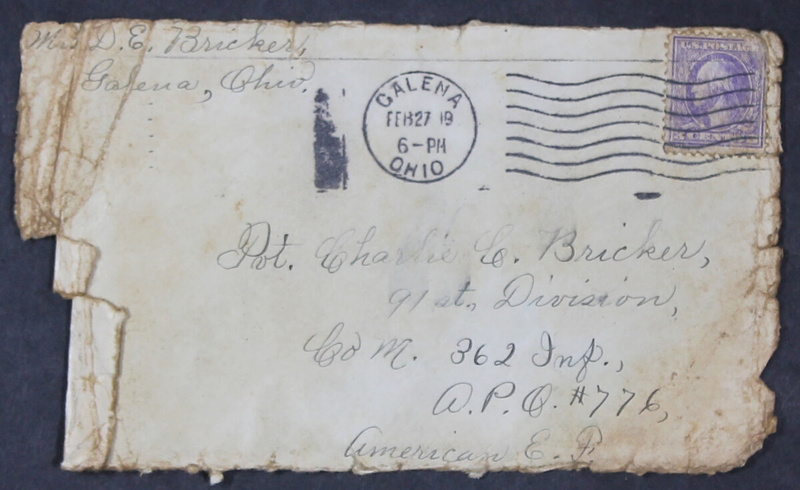 Mrs D. E. Bricker,
Galena, Ohio.
GALENA
FEB 27 19
6-PM
OHIO
U.S. POSTAGE
Pvt. Charlie C. Bricker,
91 st., Division,
Co M. 362 Inf.,
A.P.O. #776,
American E. F.